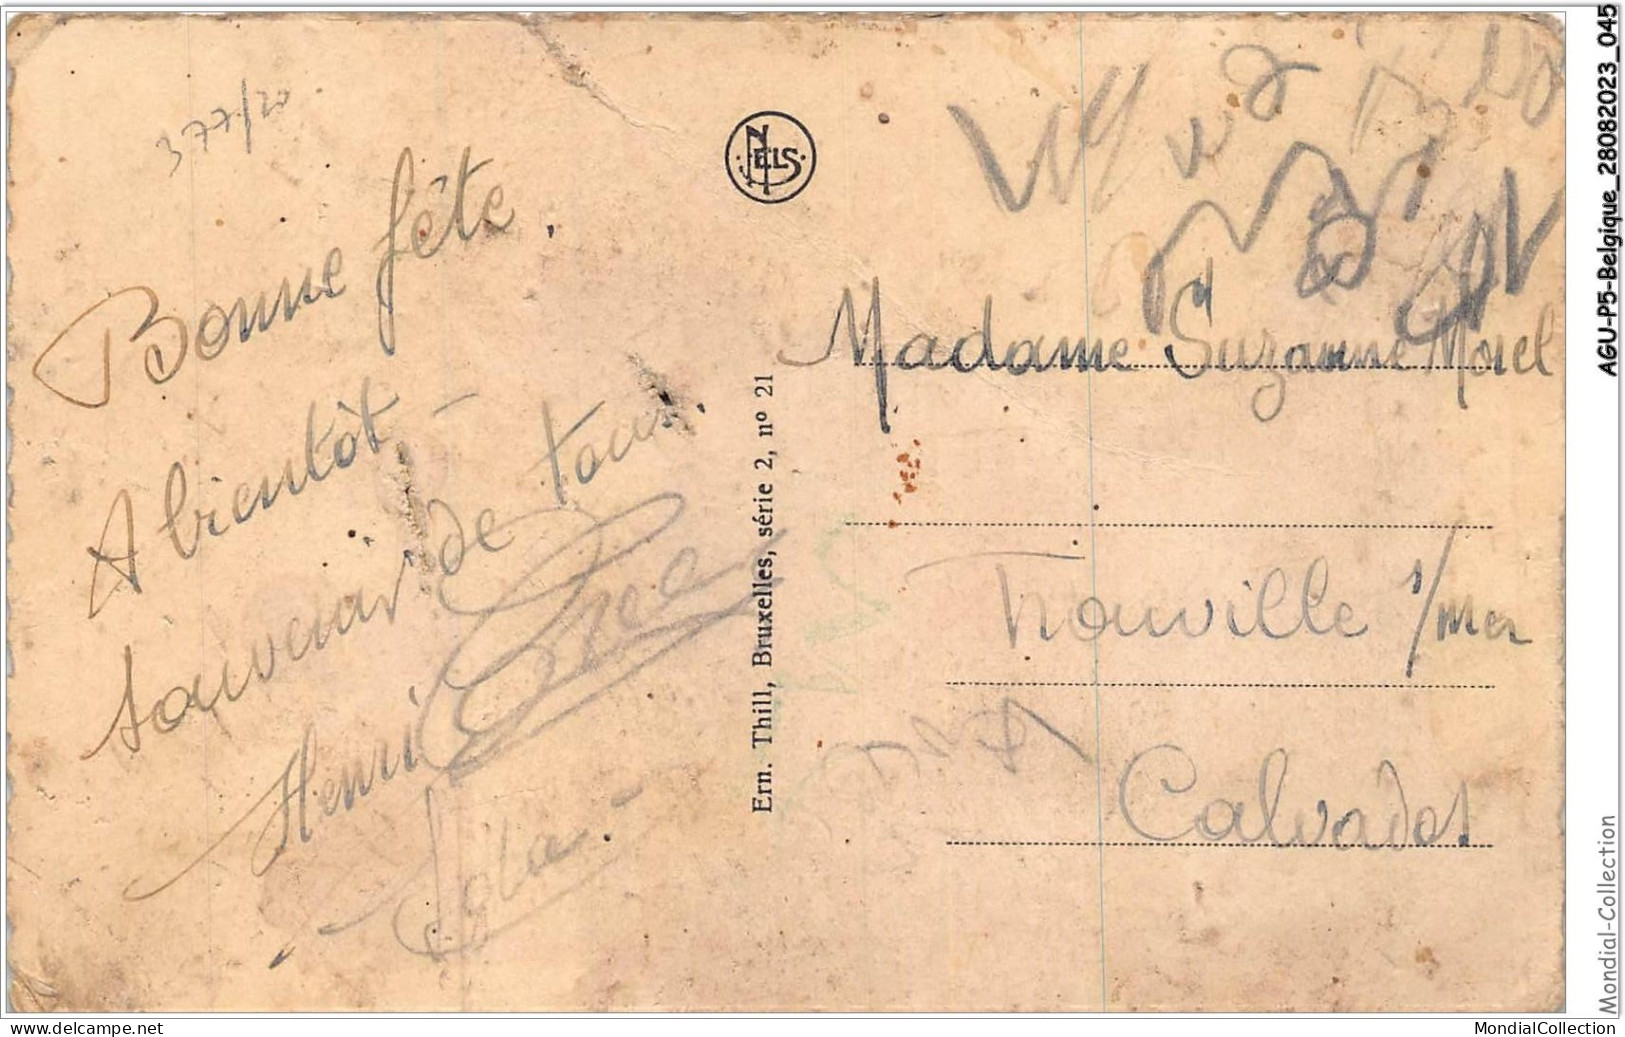 377/20
Bonne fête.
A bientôt -
souvenir de tous.
Henri
Lola -
NELS
Ern. Thill, Bruxelles, série 2, nº 21
Madame Suzanne Morel
Trouville s/mer
Calvados
AGU-P5-Belgique_28082023_045
Mondial-Collection
www.delcampe.net
MondialCollection